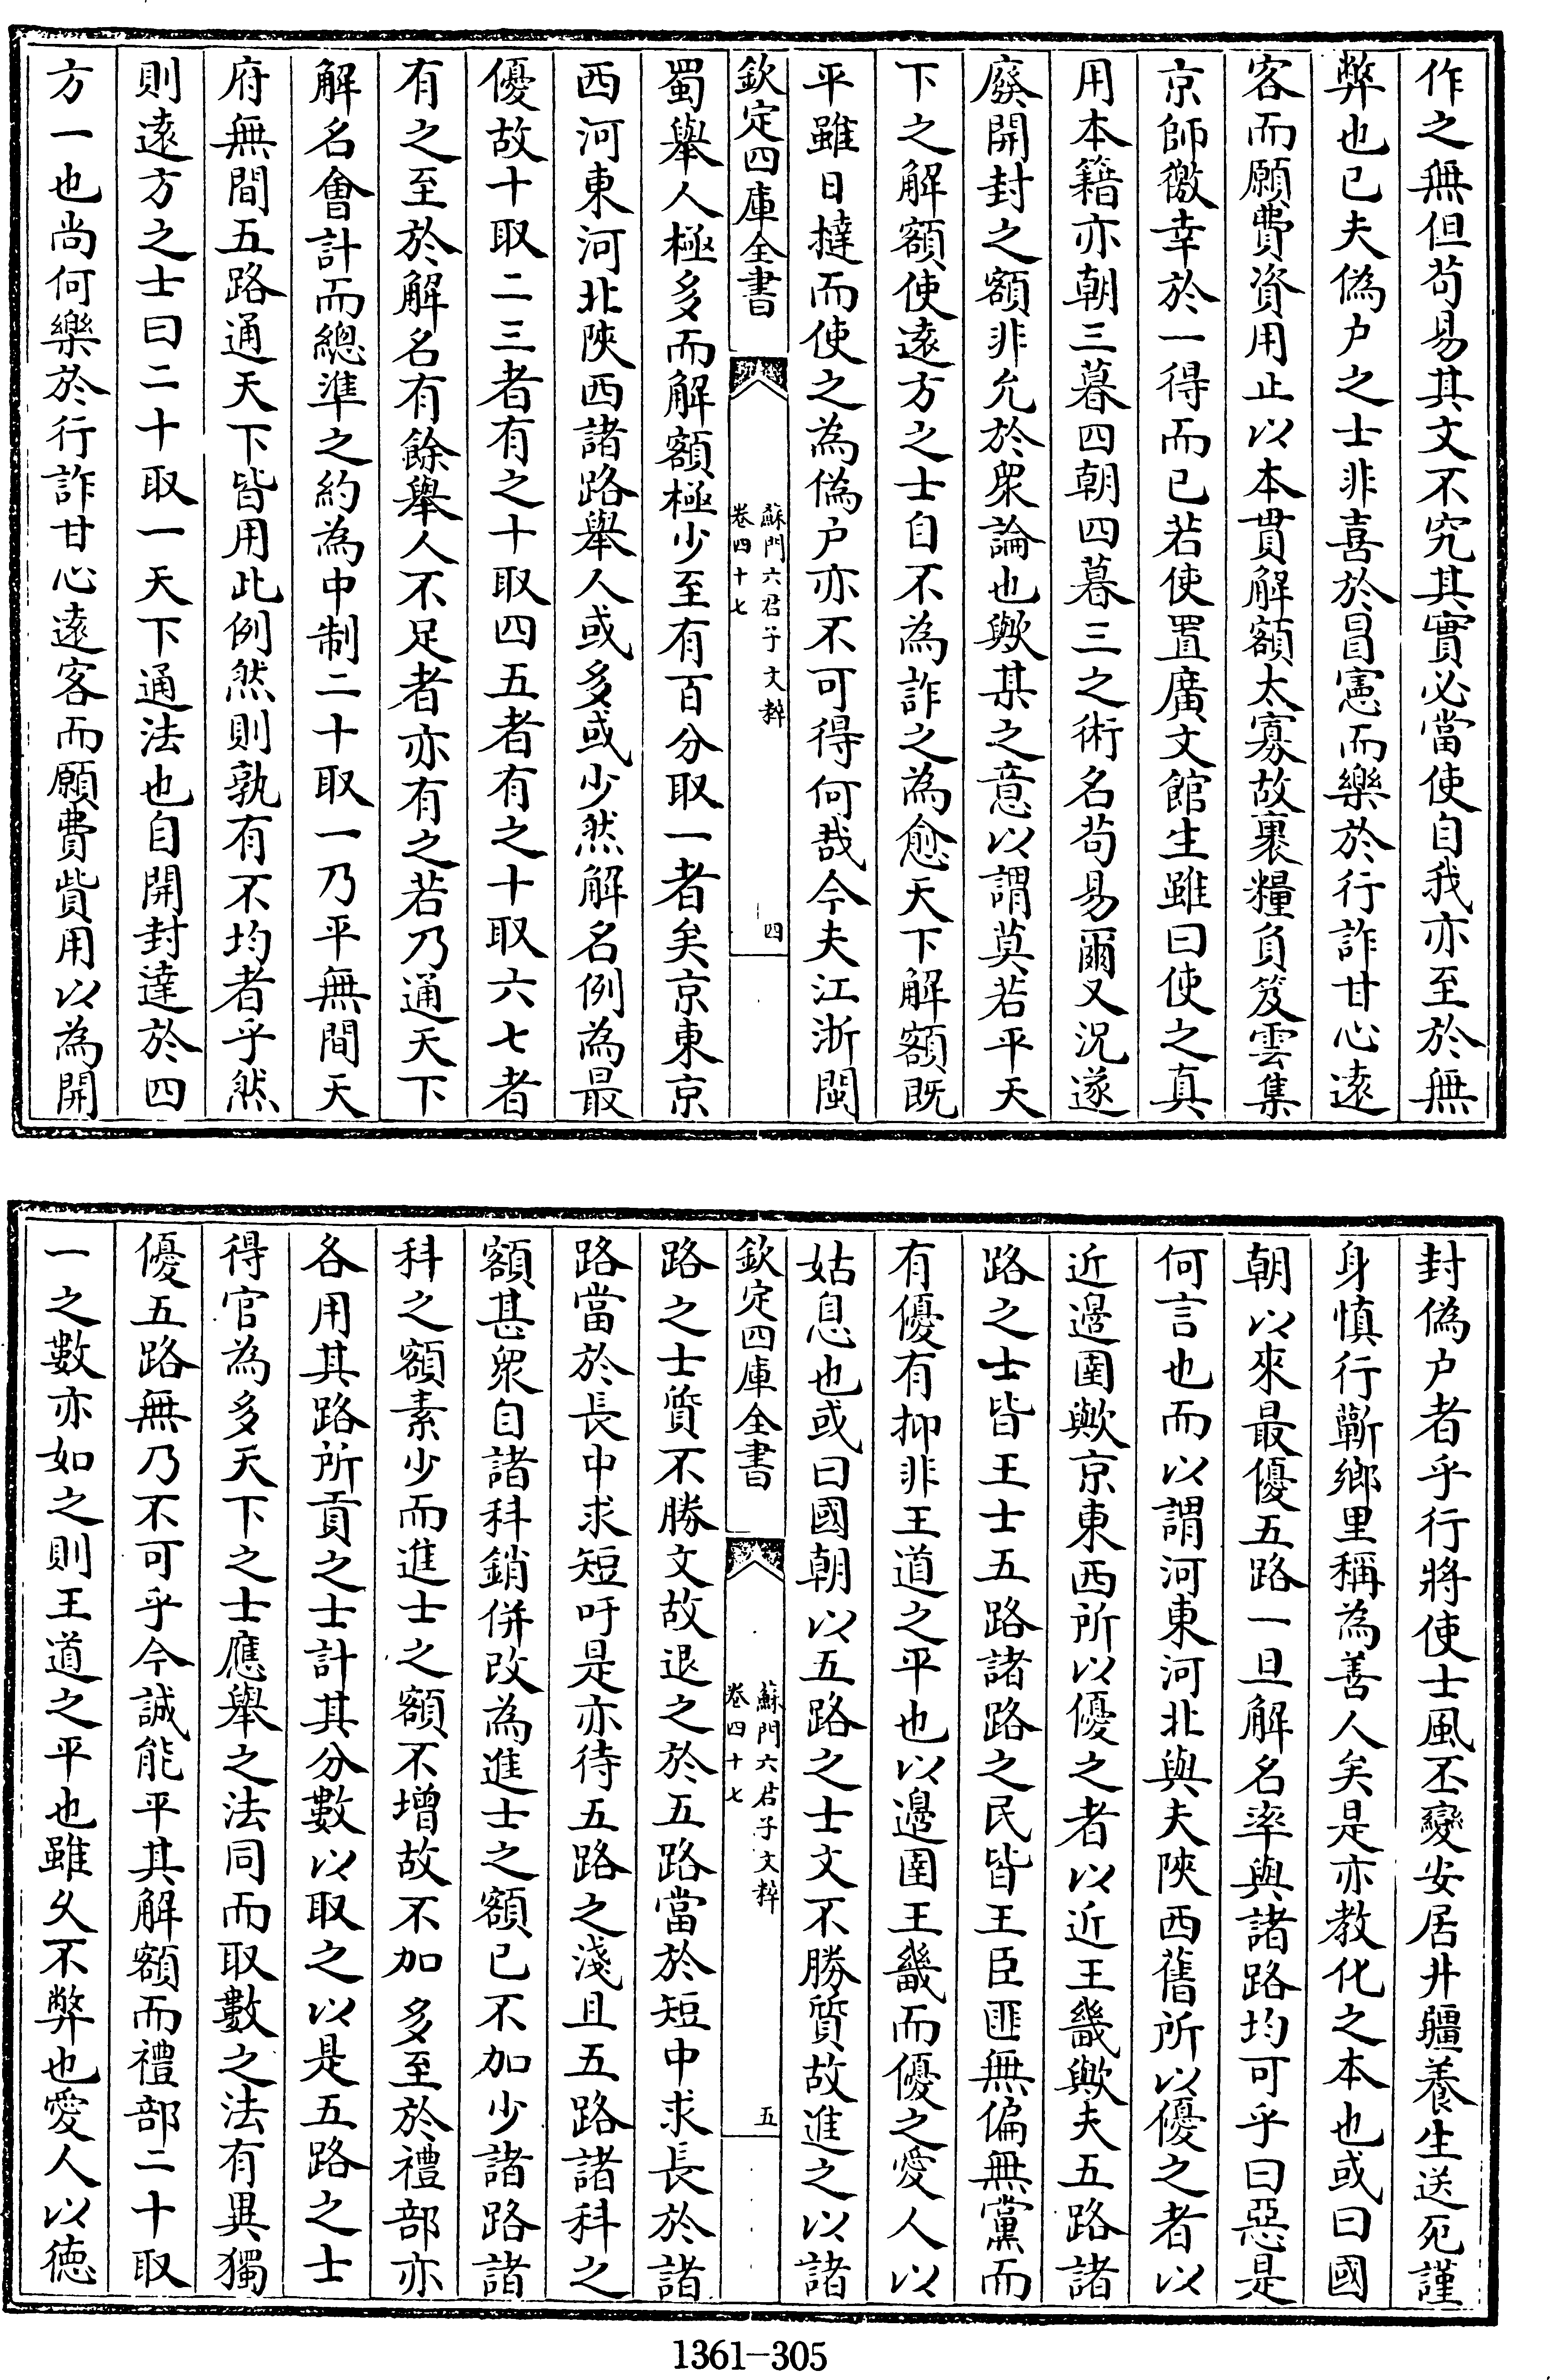 作之無但苟易其文不究其實必當使自我亦至於無
弊也已夫偽户之士非喜於冒憲而樂於行詐甘心逺
客而願費資用止以本貫解額太寡故裹糧負笈雲集
京師徼幸於一得而已若使置廣文館生雖曰使之真
用本籍亦朝三暮四朝四暮三之術名苟易爾又況遂
廢開封之額非允於衆論也歟某之意以謂莫若平天
下之解額使逺方之士自不為詐之為愈天下解額既
平雖日撻而使之為偽户亦不可得何哉今夫江浙閩
欽定四庫全書
蘇門六君子文粹
卷四十七
四
蜀舉人極多而解額極少至有百分取一者矣京東京
西河東河北陜西諸路舉人或多或少然解名例為最
優故十取二三者有之十取四五者有之十取六七者
有之至於解名有餘舉人不足者亦有之若乃通天下
解名會計而總準之約為中制二十取一乃平無間天
府無間五路通天下皆用此例然則孰有不均者乎然
則逺方之士曰二十取一天下通法也自開封達於四
方一也尚何樂於行詐甘心逺客而願費貲用以為開
封偽户者乎行將使士風丕變安居井疆養生送死謹
身慎行蘄鄉里稱為善人矣是亦教化之本也或曰國
朝以來最優五路一旦解名率與諸路均可乎曰惡是
何言也而以謂河東河北與夫陜西舊所以優之者以
近邊圉歟京東西所以優之者以近王畿歟夫五路諸
路之士皆王士五路諸路之民皆王臣匪無偏無黨而
有優有抑非王道之平也以邊圉王畿而優之愛人以
姑息也或曰國朝以五路之士文不勝質故進之以諸
欽定四庫全書
蘇門六君子文粹
卷四十七
五
路之士質不勝文故退之於五路當於短中求長於諸
路當於長中求短吁是亦待五路之淺且五路諸科之
額甚衆自諸科銷併改為進士之額已不加少諸路諸
科之額素少而進士之額不增故不加多至於禮部亦
各用其路所貢之士計其分數以取之以是五路之士
得官為多天下之士應舉之法同而取數之法有異獨
優五路無乃不可乎今誠能平其解額而禮部二十取
一之數亦如之則王道之平也雖久不弊也愛人以徳
1361-305